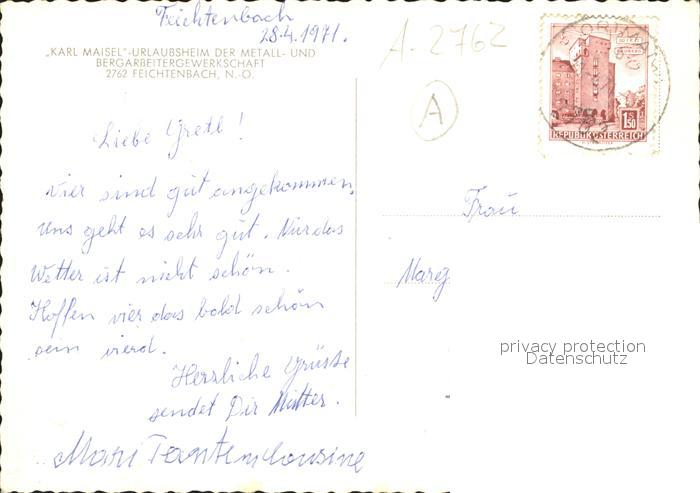 Feichtenbach
28.4.1971.
„KARL MAISEL"-URLAUBSHEIM DER METALL- UND
BERGARBEITERGEWERKSCHAFT
2762 FEICHTENBACH, N.-Ö.
A-2762
A
1.50
REPUBLIK ÖSTERREICH
Liebe Gretl!
vier sind gut angekommen,
uns geht es sehr gut. Nur das
Wetter ist nicht schön.
Hoffen vier das bald schön
sein vierd.
Herzliche Grüsse
sendet Dir Mutter.
Mari
Frau
Mareg
privacy protection
Datenschutz